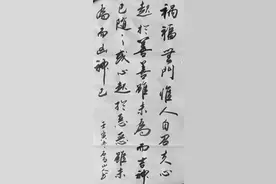 祸福無門惟人自召夫心
起於善善雖未為而吉神
已隨之或心起於惡惡雖未
為而凶神已
壬寅